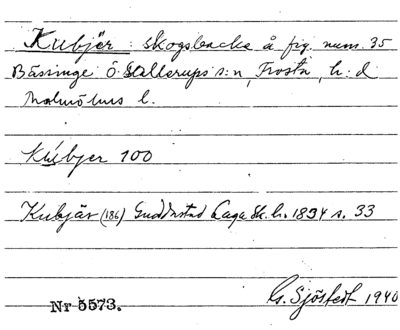 Kubjär: skogsbacke å fig. num. 35
Bässinge Ö. Sallerups s:n, Frosta, h:d
Malmöhus l.
Kubjer 100
Kubjär (186) Laga Sk. h. 1894 s. 33
Nr 5573. G. Sjöstedt 1940